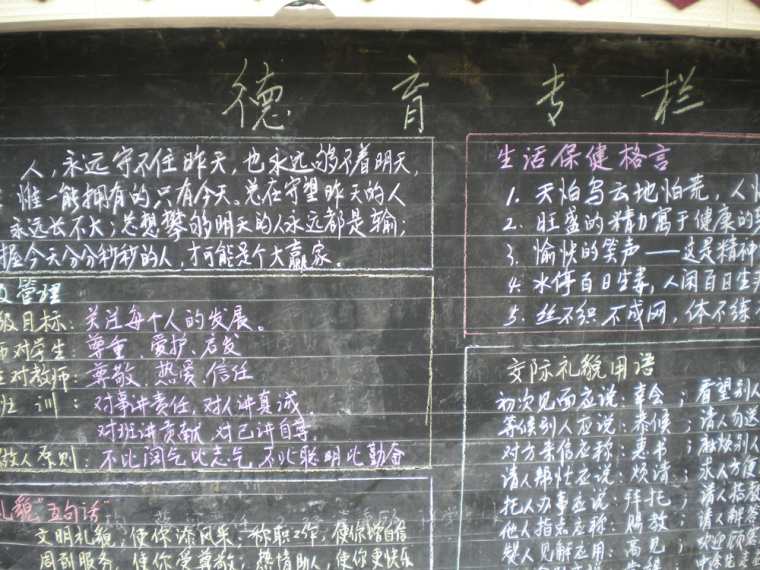 德育专栏
人，永远守不住昨天，也永远够不着明天，
惟一能拥有的只有今天。总在守望昨天的人
永远长不大；总想攀够明天的人永远都是输；
握今天分分秒秒的人，才可能是个大赢家。
管理
级目标：关注每个人的发展。
师对学生：尊重、爱护、启发
生对教师：尊敬、热爱、信任
班训：对事讲责任，对人讲真诚，
对班讲贡献，对己讲自尊。
做人原则：不比阔气比志气，不比聪明比勤奋
礼貌"五句话"
文明礼貌，使你添风采；称职工作，使你增自信
周到服务，使你受尊敬；热情助人，使你更快乐
生活保健格言
1. 天怕乌云地怕荒，人怕
2. 旺盛的精力寓于健康的
3. 愉快的笑声——这是精神
4. 水停百日生毒，人闲百日生
5. 丝不织不成网，体不练
交际礼貌用语
初次见面应说：幸会；看望别人
等候别人应说：恭候；请人勿送
对方来信应称：惠书；麻烦别人
请人帮忙应说：烦请；求人方便
托人办事应说：拜托；请人指教
他人指点应称：赐教；请人解答
赞人见解应用：高见；欢迎顾客